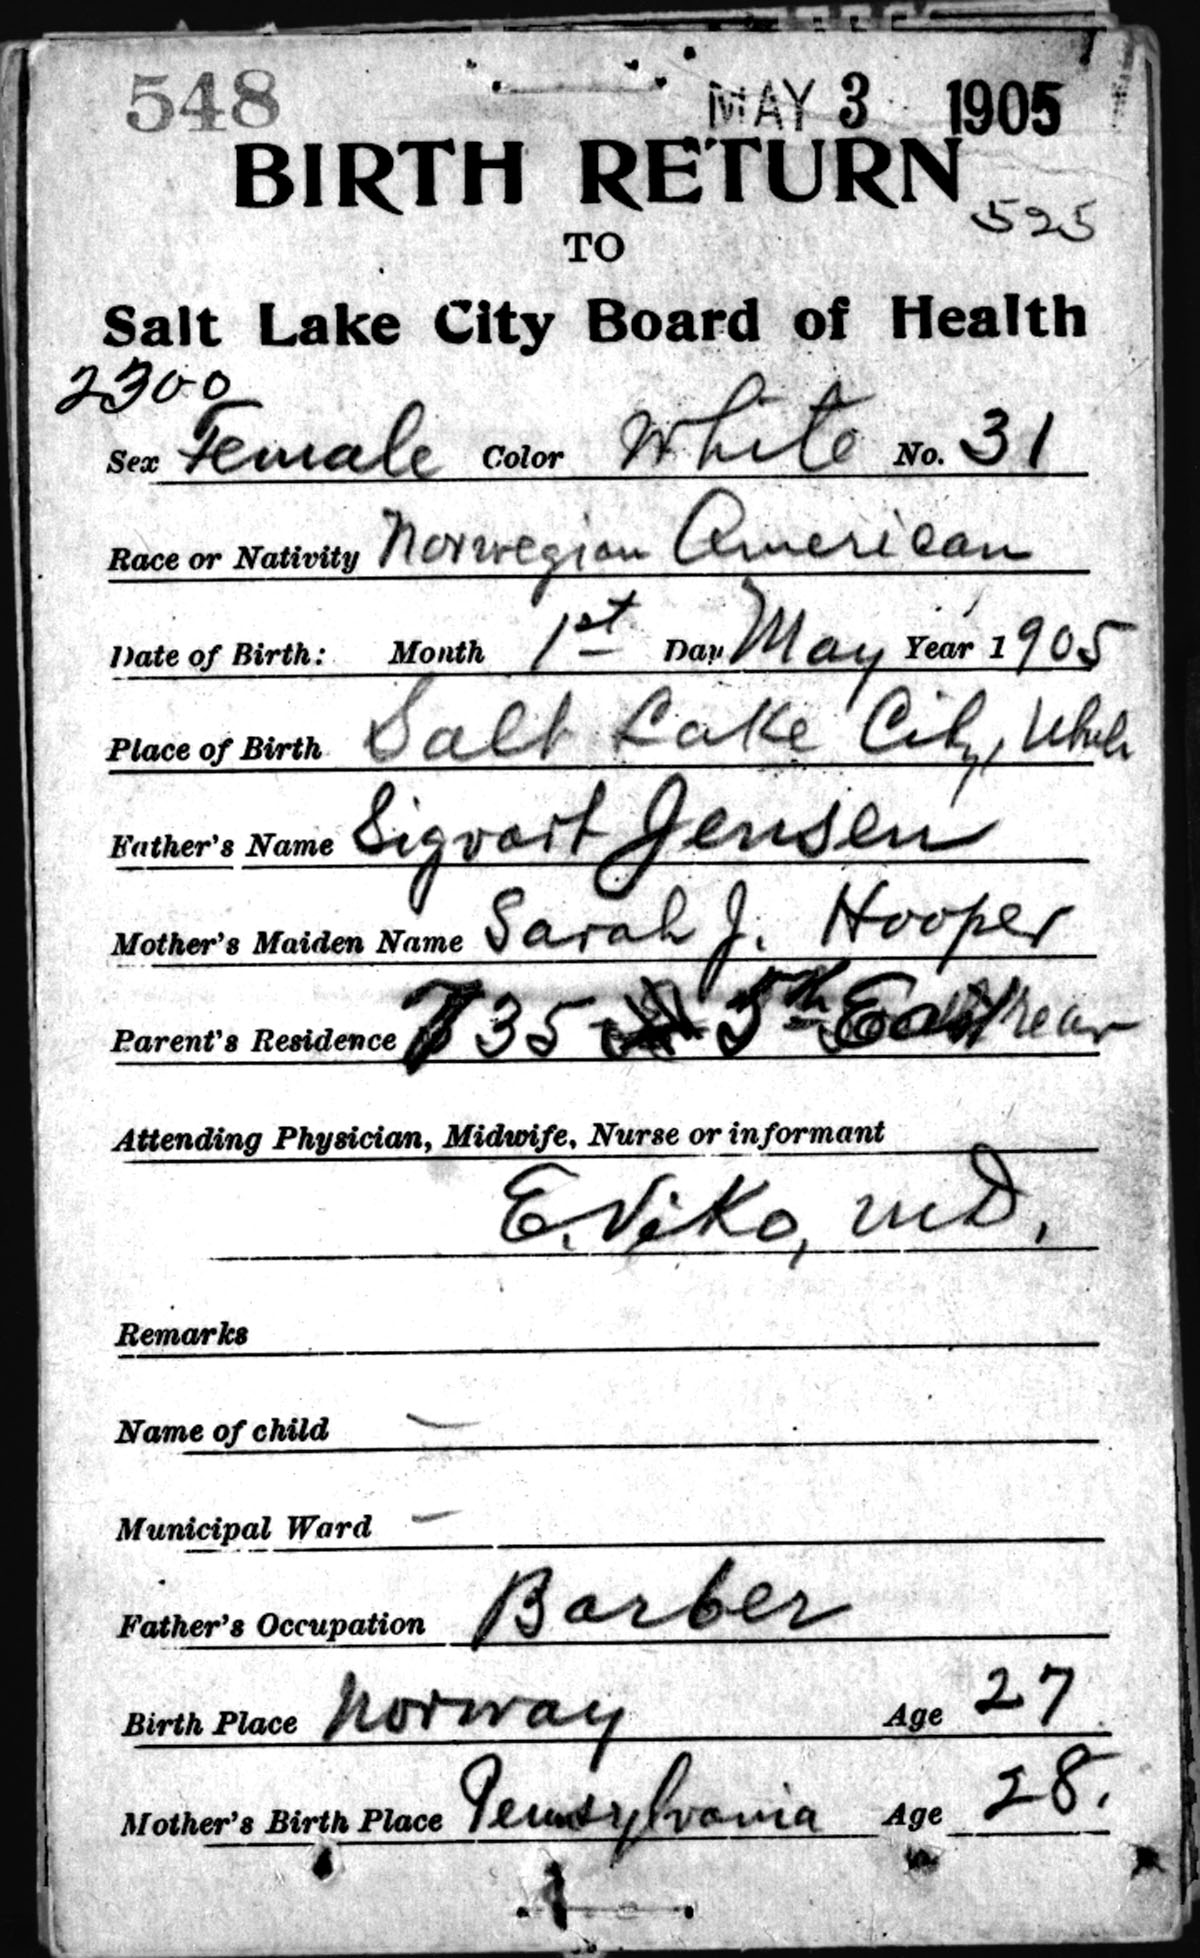 548 MAY 3 1905
BIRTH RETURN
525
TO
Salt Lake City Board of Health
2300
Sex Female Color White No. 31
Race or Nativity Norwegian American
Date of Birth: Month 1st Day May Year 1905
Place of Birth Salt Lake City, Utah
Father's Name Sigvart Jensen
Mother's Maiden Name Sarah J. Hooper
Parent's Residence 735 5th East rear
Attending Physician, Midwife, Nurse or informant
E. Viko, M.D.
Remarks
Name of child —
Municipal Ward —
Father's Occupation Barber
Birth Place Norway Age 27
Mother's Birth Place Pennsylvania Age 28.